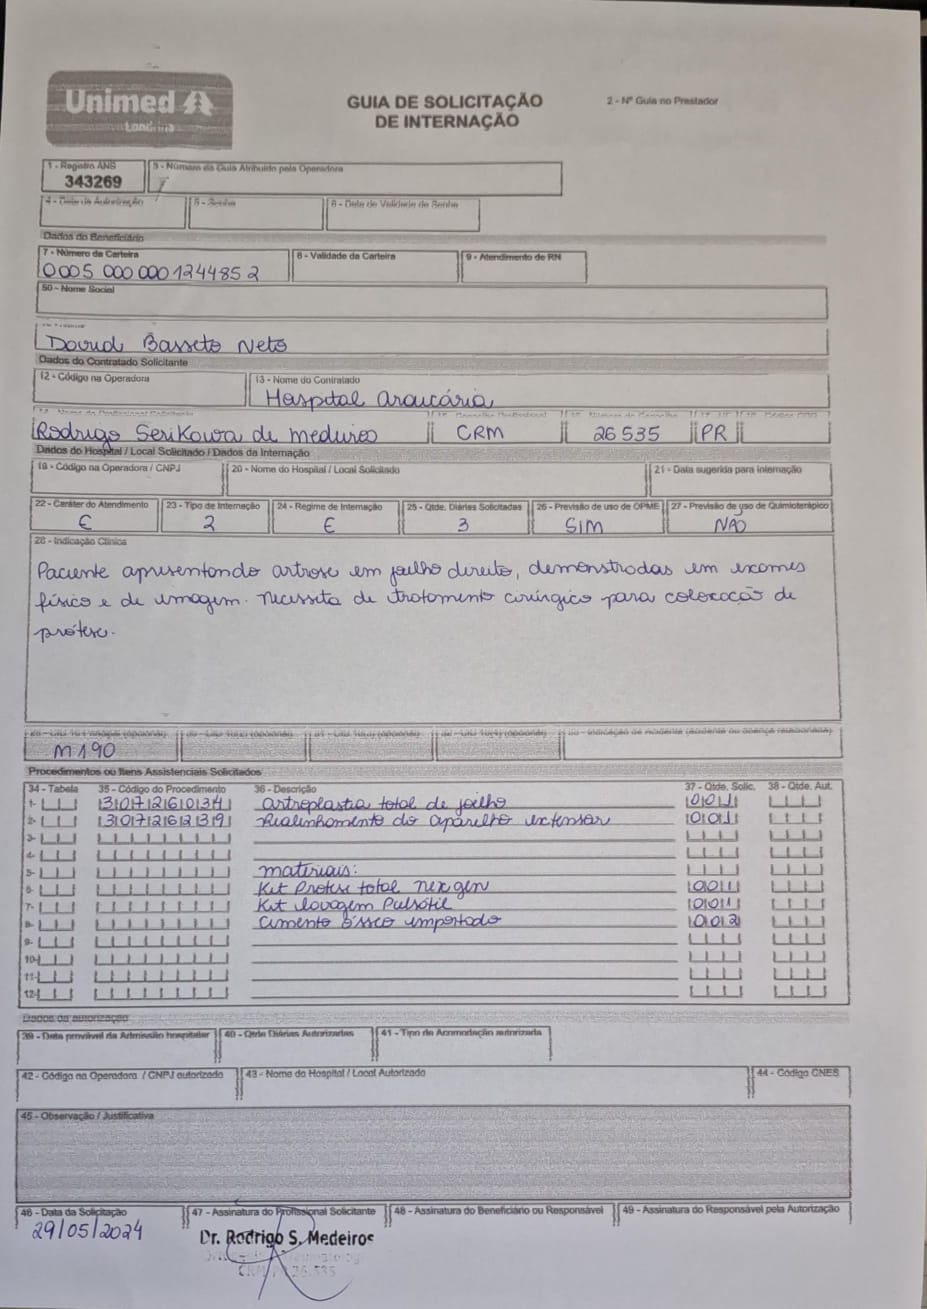 Unimed
Londrina
GUIA DE SOLICITAÇÃO
DE INTERNAÇÃO
2 - Nº Guia no Prestador
1 - Registro ANS
343269
3 - Número da Guia Atribuído pela Operadora
4 - Data da Autorização
5 - Senha
6 - Data de Validade da Senha
Dados do Beneficiário
7 - Número da Carteira
0005 000 000 1244852
8 - Validade da Carteira
9 - Atendimento de RN
50 - Nome Social
David Basseto Neto
Dados do Contratado Solicitante
12 - Código na Operadora
13 - Nome do Contratado
Hospital Araucária
Rodrigo Serikawa de Medeiros
CRM
26 535
PR
Dados do Hospital / Local Solicitado / Dados da Internação
19 - Código na Operadora / CNPJ
20 - Nome do Hospital / Local Solicitado
21 - Data sugerida para internação
22 - Caráter do Atendimento
E
23 - Tipo de Internação
2
24 - Regime de Internação
E
25 - Qtde. Diárias Solicitadas
3
26 - Previsão de uso de OPME
SIM
27 - Previsão de uso de Quimioterápico
NÃO
28 - Indicação Clínica
Paciente apresentando artrose em joelho direito, demonstradas em exames
físico e de imagem. Necessita de tratamento cirúrgico para colocação de
prótese.
M190
Procedimentos ou Itens Assistenciais Solicitados
34 - Tabela 35 - Código do Procedimento 36 - Descrição 37 - Qtde. Solic. 38 - Qtde. Aut.
1- 30726034 artroplastia total de joelho 001
2- 30726239 Realinhamento do aparelho extensor 001
3-
4-
5- materiais:
6- Kit Protese total nexgen 001
7- Kit lavagem Pulsátil 001
8- cimento ósseo importado 002
9-
10-
11-
12-
Dados da autorização
39 - Data provável da Admissão hospitalar
40 - Qtde Diárias Autorizadas
41 - Tipo de Acomodação autorizada
42 - Código na Operadora / CNPJ autorizado
43 - Nome do Hospital / Local Autorizado
44 - Código CNES
45 - Observação / Justificativa
46 - Data da Solicitação
29/05/2024
47 - Assinatura do Profissional Solicitante
48 - Assinatura do Beneficiário ou Responsável
49 - Assinatura do Responsável pela Autorização
Dr. Rodrigo S. Medeiros